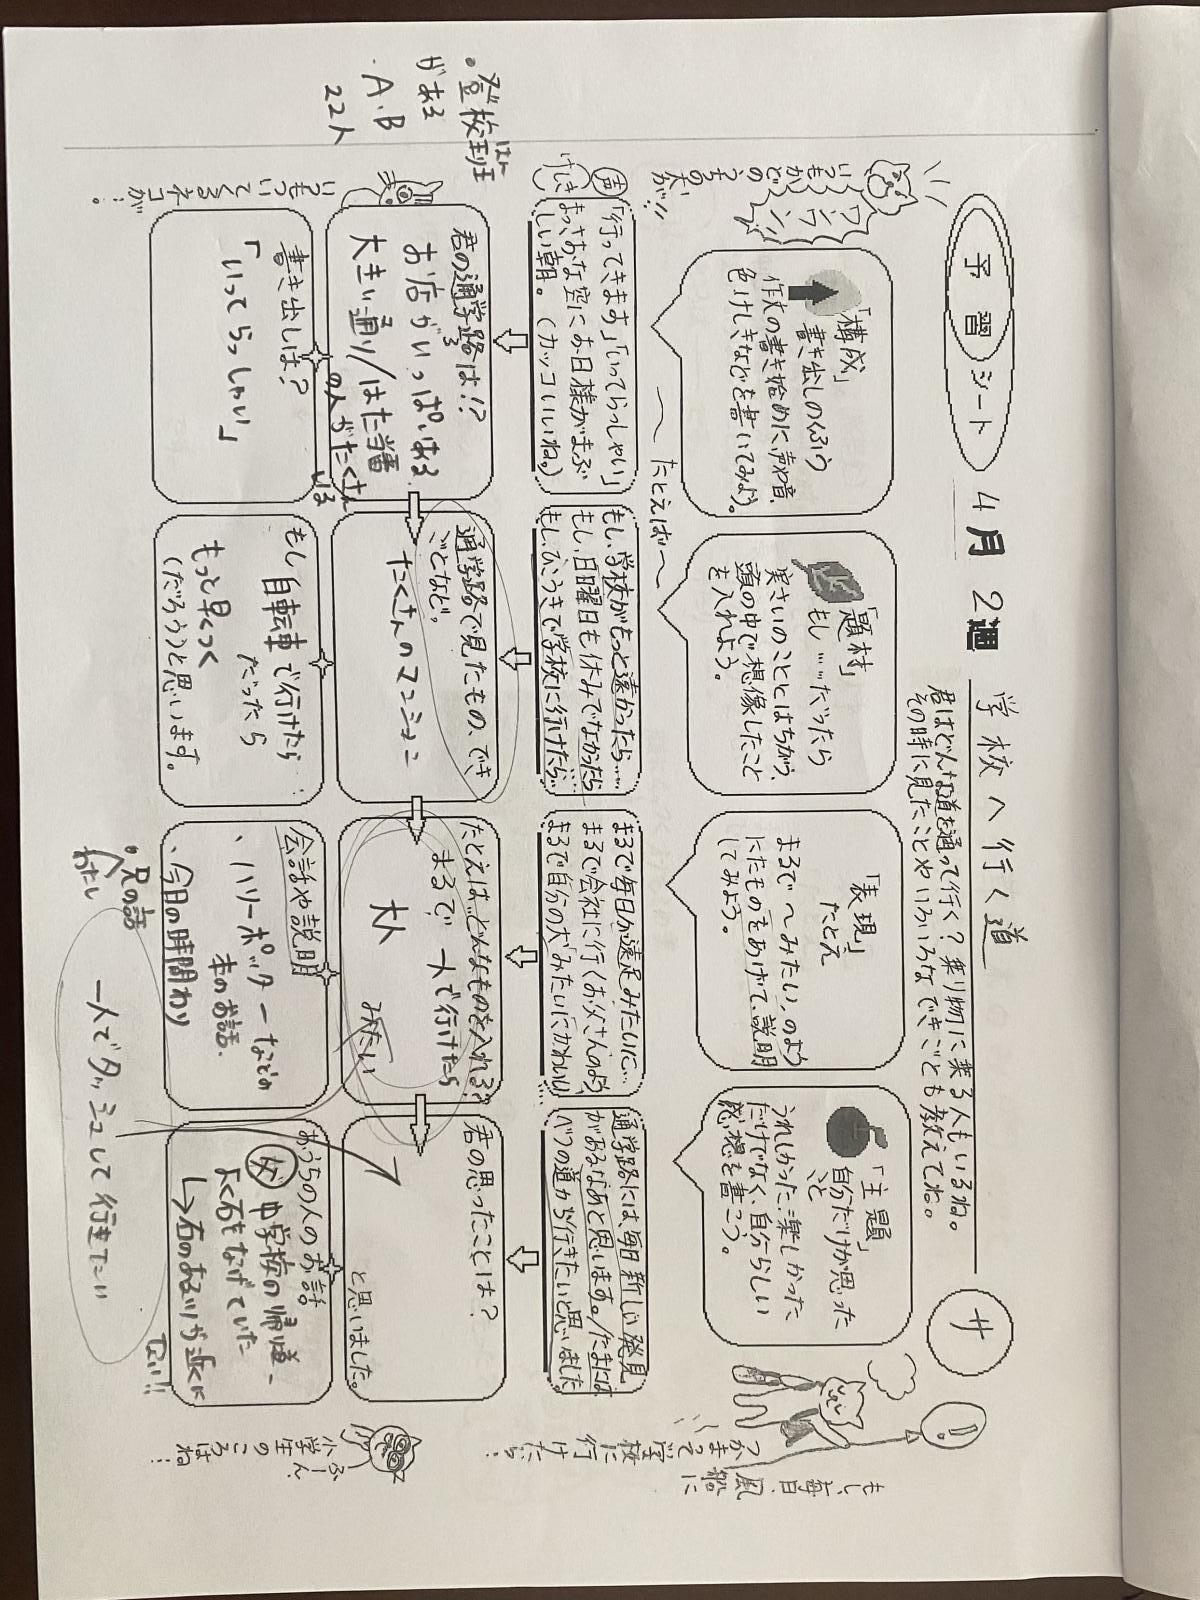 予習シート
4月 2週
学校へ行く道
君はどんな道を通って行く?乗り物に乗る人もいるね。
その時に見たことやいろいろなできごとも教えてね。
サ
いつもかどのうちの犬が!!
ワンワン
「構成」
書き出しのくふう
作文の書き始めに、声や音、
色、けしきなどを書いてみよう。
「題材」
もし……だったら
実さいのこととはちがう、
頭の中で想像したこと
を入れよう。
「表現」
たとえ
まるで〜みたい、のよう
にたものをあげて、説明
してみよう。
「主題」
自分だけが思った
こと
うれしかった、楽しかった
だけでなく、自分らしい
感想を書こう。
もし、毎日、風船に
つかまって学校に
行けたら…
〜たとえば〜
声
けしき
「行ってきます」「いってらっしゃい」
まっさおな空にお日様がまぶ
しい朝。(カッコいいね。)
もし、学校がもっと遠かったら……
もし、日曜日も休みでなかったら
もし、ひこうきで学校に行けたら…
まるで毎日が遠足みたいに…
まるで会社に行くお父さんのよう
まるで自分の犬みたいにかわいい…
通学路には、毎日新しい発見
があるなあと思います。/たまには
べつの道から行きたいと思いました
君の通学路は!?
お店がいっぱいある
大きい通り/はた当番
の人がたくさん
いる
通学路で見たもの、でき
ごとなど。
たくさんのマンション
たとえば、どんなものを入れる?
まるで一人で行けたら
大人
みたい
君の思ったことは?
と思いました。
書き出しは?
「いってらっしゃい」
もし
自転車で行けたら
だったら
もっと早くつく
(だろう)と思います。
会話や説明
、ハリーポッターなどの
本のお話、
、今日の時間わり
・兄の話
わたし
おうちの人のお話
父 中学校の帰り道、
よく石をなげていた
↳右のあるりが近くに
ない!!
一人でダッシュして行きたい
いつもついてくるネコが…。
ふーん、
小学生のころはね!
・登校班
はん
がある
・A、B
22人